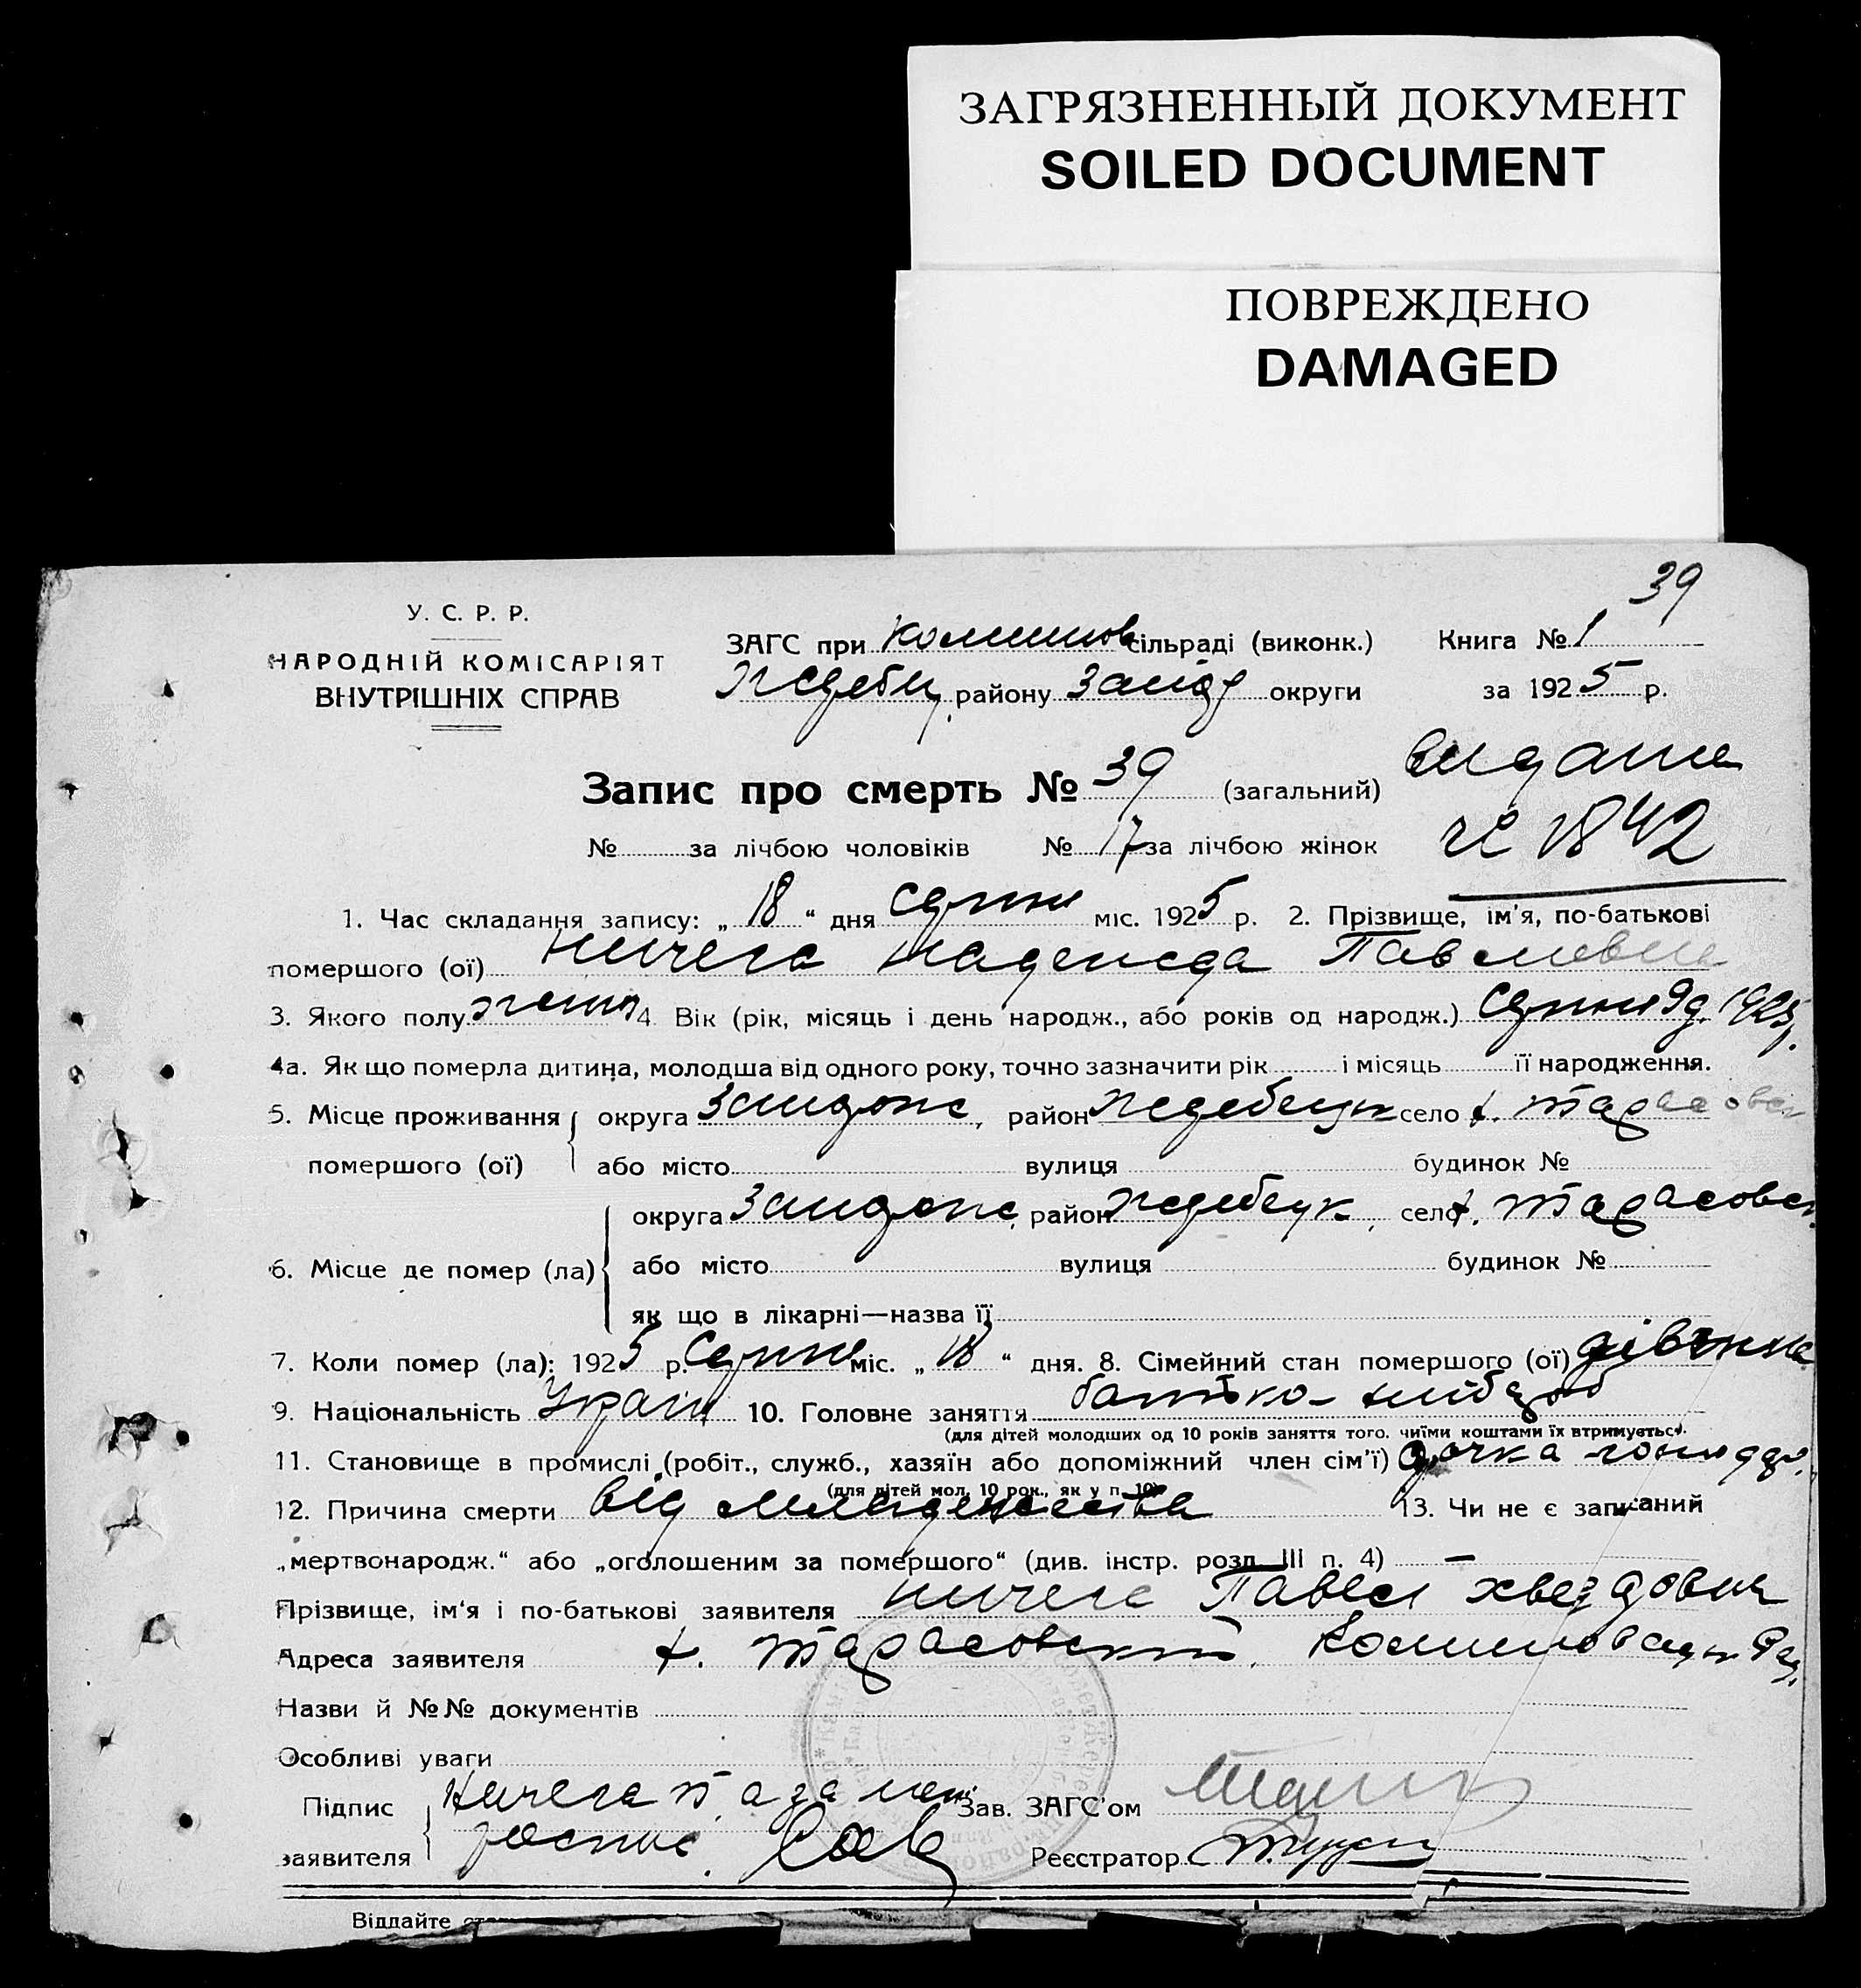 ЗАГРЯЗНЕННЫЙ ДОКУМЕНТ
SOILED DOCUMENT
ПОВРЕЖДЕНО
DAMAGED
39
У. С. Р. Р.
НАРОДНІЙ КОМІСАРІЯТ
ВНУТРІШНІХ СПРАВ
ЗАГС при сільраді (виконк.) Книга № 1
району округи за 1925 р.
Запис про смерть № 39 (загальний)
№ за лічбою чоловіків № 17 за лічбою жінок
№ 1842
1. Час складання запису: „ 18 “ дня серпня міс. 1925 р. 2. Прізвище, ім'я, по-батькові
помершого (ої) Ничега Надежда Павловна
3. Якого полу 4. Вік (рік, місяць і день народж., або років од народж.) серпня 9 д. 1925 р.
4а. Як що померла дитина, молодша від одного року, точно зазначити рік і місяць її народження.
5. Місце проживання округа район село х.
помершого (ої) або місто вулиця будинок №
округа , район , село х.
6. Місце де помер (ла) або місто вулиця будинок №
як що в лікарні—назва її
7. Коли помер (ла): 1925 р. серпня міс. „ 18 “ дня. 8. Сімейний стан помершого (ої) дівчина
9. Національність Україн 10. Головне заняття батько - хлібороб
(для дітей молодших од 10 років заняття того, чиїми коштами їх втримується).
11. Становище в промислі (робіт., служб., хазяїн або допоміжний член сім'ї) дочка
(для дітей мол. 10 рок., як у п. 10)
12. Причина смерти від младенчества 13. Чи не є записаний
„мертвонародж.“ або „оголошеним за помершого“ (див. інстр. розд. III п. 4) —
Прізвище, ім'я і по-батькові заявителя Ничега Павел
Адреса заявителя х.
Назви й №№ документів
Особливі уваги
Підпис Ничега Зав. ЗАГС'ом
заявителя Реєстратор
Віддайте